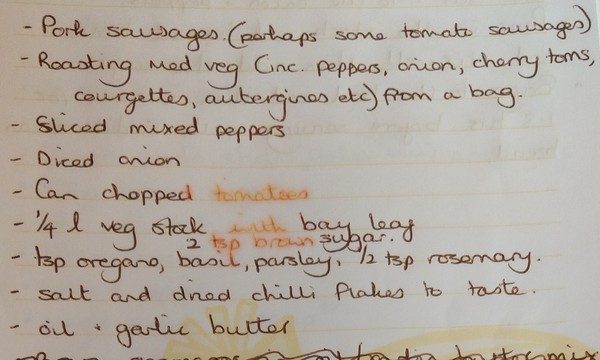 - Pork sausages. (perhaps some tomato sausages)
- Roasting med veg (inc. peppers, onion, cherry toms,
courgettes, aubergines etc) from a bag.
- Sliced mixed peppers
- Diced onion
- Can chopped tomatoes
- 1/4 l veg stock with bay leaf
2 tsp brown sugar.
- tsp oregano, basil, parsley, 1/2 tsp rosemary.
- salt and dried chilli flakes to taste.
- oil + garlic butter